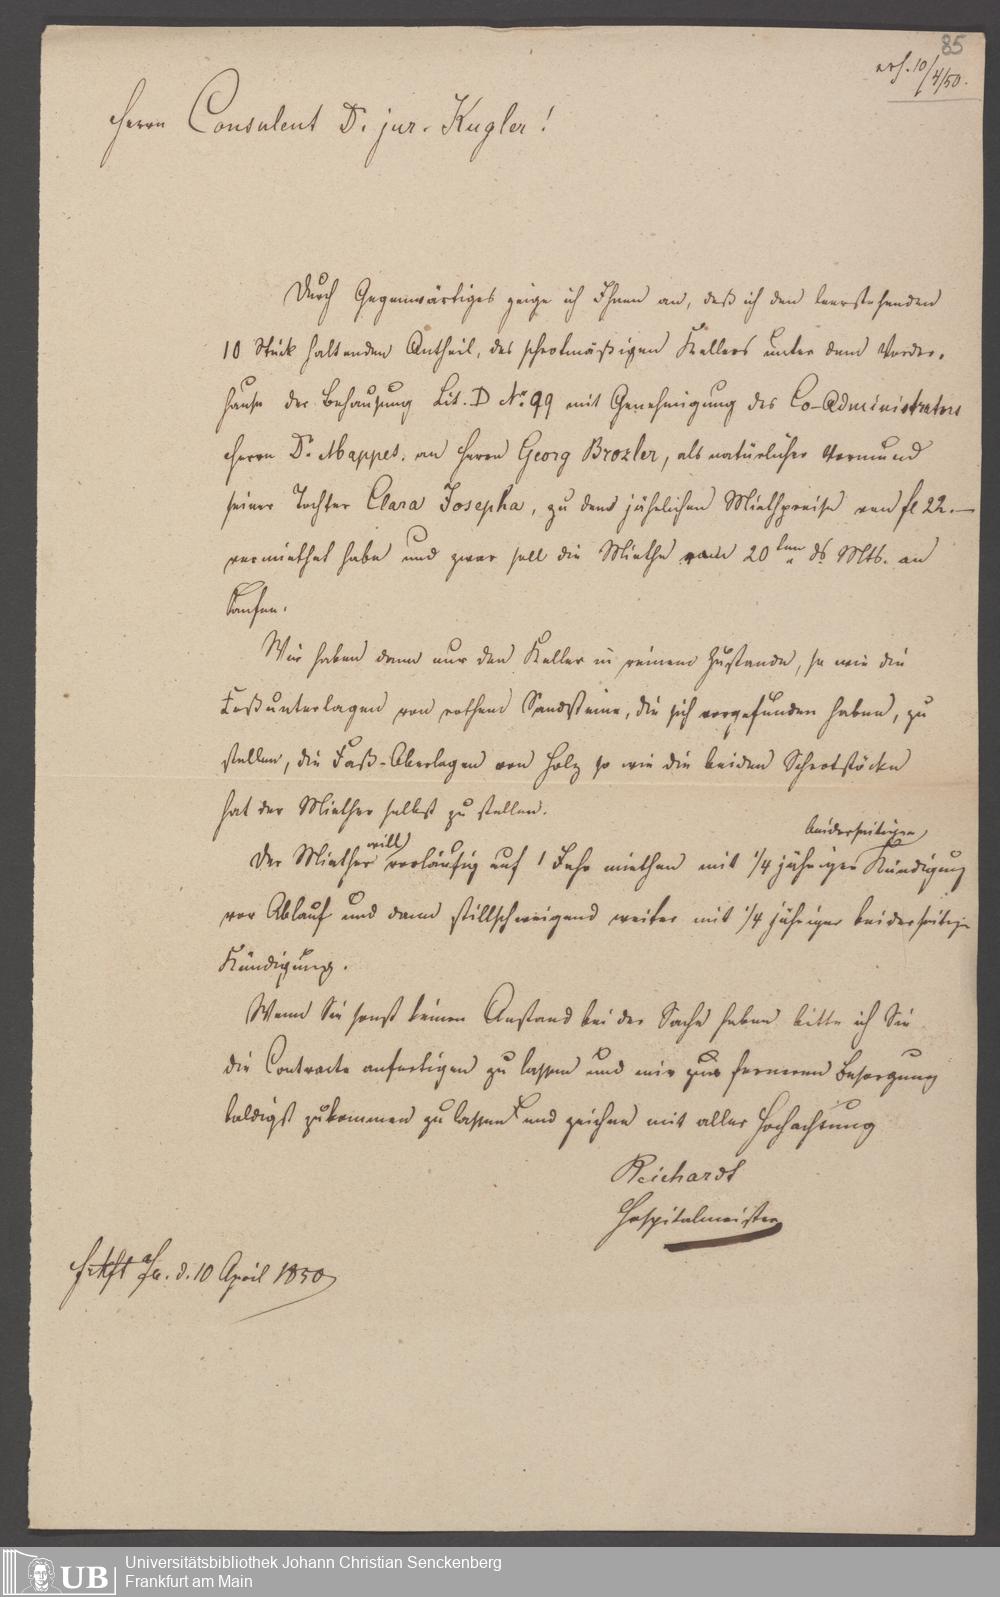 85
erh. 10/4/50.
Herrn Consulent Dr. jur. Kugler!
Durch Gegenwärtiges zeige ich Ihnen an, daß ich den leerstehenden
10 Stück haltenden Antheil, des schrotmäßigen Kellers unter dem Vorder-
hause der Behausung Lit. D No. 99 mit Genehmigung des Co-Administrators
Herrn Dr. Mappes, an Herrn Georg Brozler, als natürlicher Vormund
seiner Tochter Clara Josepha, zu dem jährlichen Miethpreise von fl 22.—
vermiethet habe und zwar soll die Miethe vom 20ten ds. Mts. an
laufen.
Wir haben dann nur den Keller in reinem Zustande, so wie die
Faßunterlagen von rothem Sandsteine, die sich vorgefunden haben, zu
stellen, die Faß-Oberlagen von Holz so wie die beiden Schrotstöcke
hat der Miether selbst zu stellen.
Der Miether will vorläufig auf 1 Jahr miethen mit 1/4 jähriger beiderseitigen Kündigung
vor Ablauf und dann stillschweigend weiter mit 1/4 jähriger beiderseitiger
Kündigung.
Wenn Sie sonst keinen Anstand bei der Sache haben bitte ich Sie
die Contracte anfertigen zu lassen und mir zur ferneren Besorgung
baldigst zukommen zu lassen und zeichne mit aller Hochachtung
Reichardt
Hospitalmeister
Frkft a/M. d. 10 April 1850
UB Universitätsbibliothek Johann Christian Senckenberg
Frankfurt am Main